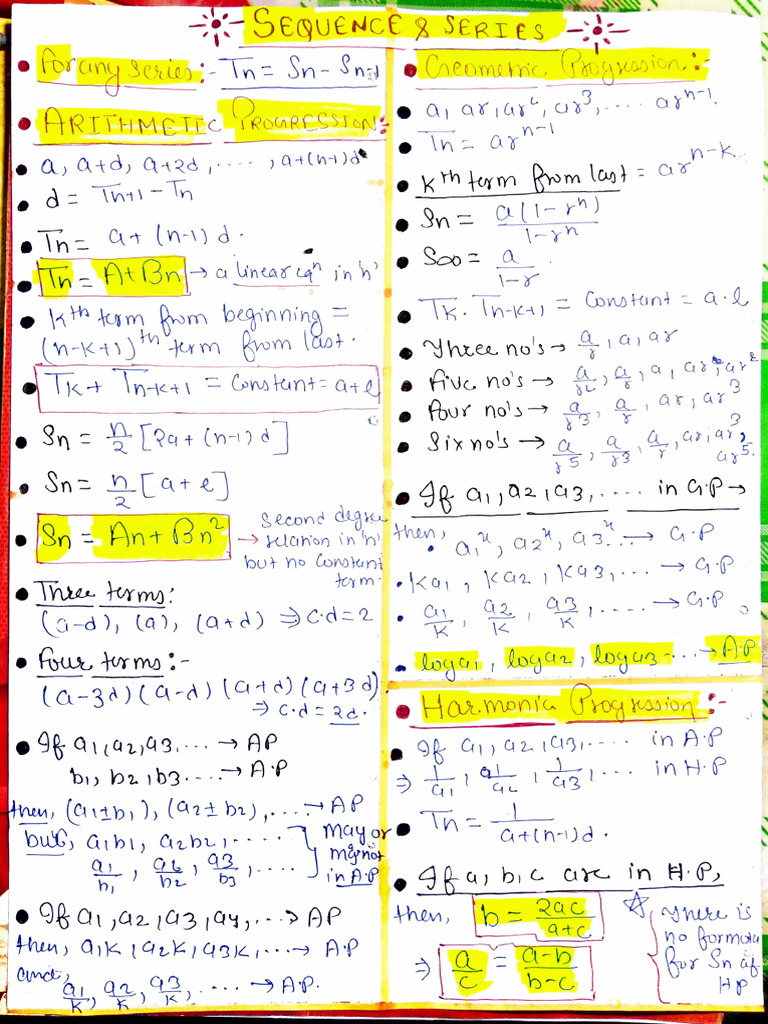 SEQUENCE & SERIES
• For any series:- Tn = Sn - Sn-1
• ARITHMETIC PROGRESSION:-
• a, a+d, a+2d, ....., a+(n-1)d
• d = Tn+1 - Tn
• Tn = a + (n-1) d.
• Tn = A+Bn → a linear eqⁿ in 'n'
• Kth term from beginning =
(n-k+1)th term from last.
• TK + Tn-k+1 = Constant = a+l
• Sn = n/2 [2a + (n-1) d]
• Sn = n/2 [a + l]
• Sn = An + Bn² → Second degree
relation in 'n'
but no constant
term.
• Three terms:
(a-d), (a), (a+d) ⇒ c.d = 2
• Four terms:-
(a-3d) (a-d) (a+d) (a+3d)
⇒ c.d = 2d.
• If a1, a2, a3, .... → AP
b1, b2, b3 .... → A.P
then, (a1±b1), (a2±b2), .... → AP
but, a1b1, a2b2, ....
a1/b1, a2/b2, a3/b3, .... } may or
may not
in A.P
• If a1, a2, a3, a4, .... → AP
then, a1K, a2K, a3K, .... → A.P
and,
a1/K, a2/K, a3/K, .... → A.P.
• Geometric Progression:-
• a, ar, ar², ar³, .... arⁿ⁻¹
• Tn = arⁿ⁻¹
• Kth term from last = arⁿ⁻ᵏ
• Sn = a(1-rⁿ)/1-rⁿ
• S∞ = a/1-r
• TK. Tn-k+1 = Constant = a.l
• Three no's → a/r, a, ar
• Five no's → a/r2, a/r, a, ar, ar²
• Four no's → a/r3, a/r, ar, ar³
• Six no's → a/r5, a/r3, a/r, ar, ar³, ar5.
• If a1, a2, a3, .... in G.P →
then,
• a1ˣ, a2ˣ, a3ˣ ... → G.P
• Ka1, Ka2, Ka3, .... → G.P
• a1/K, a2/K, a3/K, .... → G.P
• log a1, log a2, log a3 .... → A.P
• Harmonic Progression:-
• If a1, a2, a3, .... in A.P
⇒ 1/a1, 1/a2, 1/a3, .... in H.P
• Tn = 1/a+(n-1)d.
• If a, b, c are in H.P,
then, b = 2ac/a+c
⇒ a/c = a-b/b-c
☆ There is
no formula
for Sn of
HP